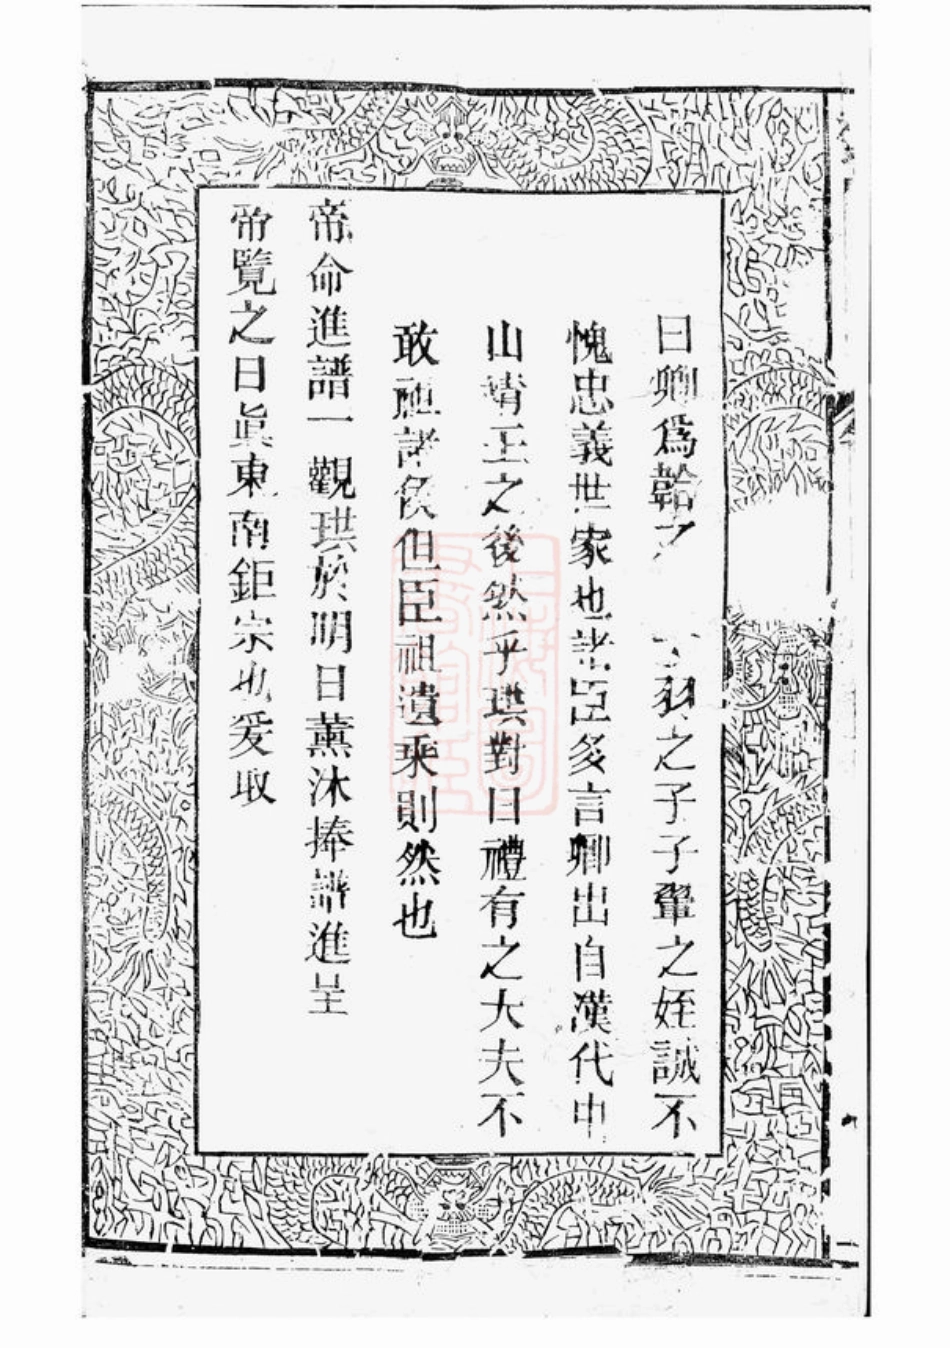 曰卿為韐之 羽之子子翬之姪誠不
愧忠義世家也諸臣多言卿出自漢代中
山靖王之後然乎珙對曰禮有之大夫不
敢祖諸侯但臣祖遺乘則然也
帝命進譜一觀珙於明日薰沐捧譜進呈
帝覽之曰眞東南鉅宗也爰取